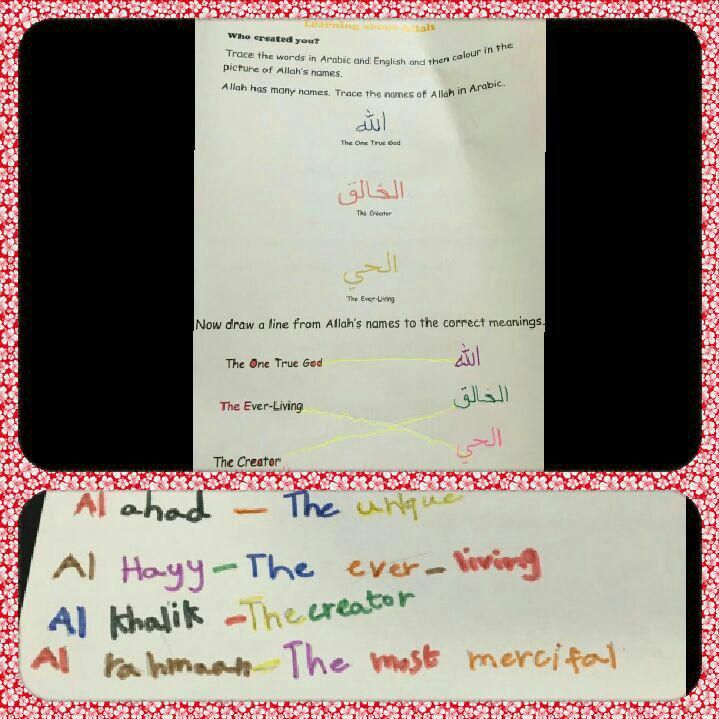 Learning about Allah
Who created you?
Trace the words in Arabic and English and then colour in the
picture of Allah's names.
Allah has many names. Trace the names of Allah in Arabic.
الله
The One True God
الخالق
The Creator
الحي
The Ever-Living
Now draw a line from Allah's names to the correct meanings.
The One True God الله
The Ever-Living الخالق
The Creator الحي
Al ahad - The unique
Al Hayy - The ever - living
Al khalik - The creator
Al rahmaan - The most mercifal